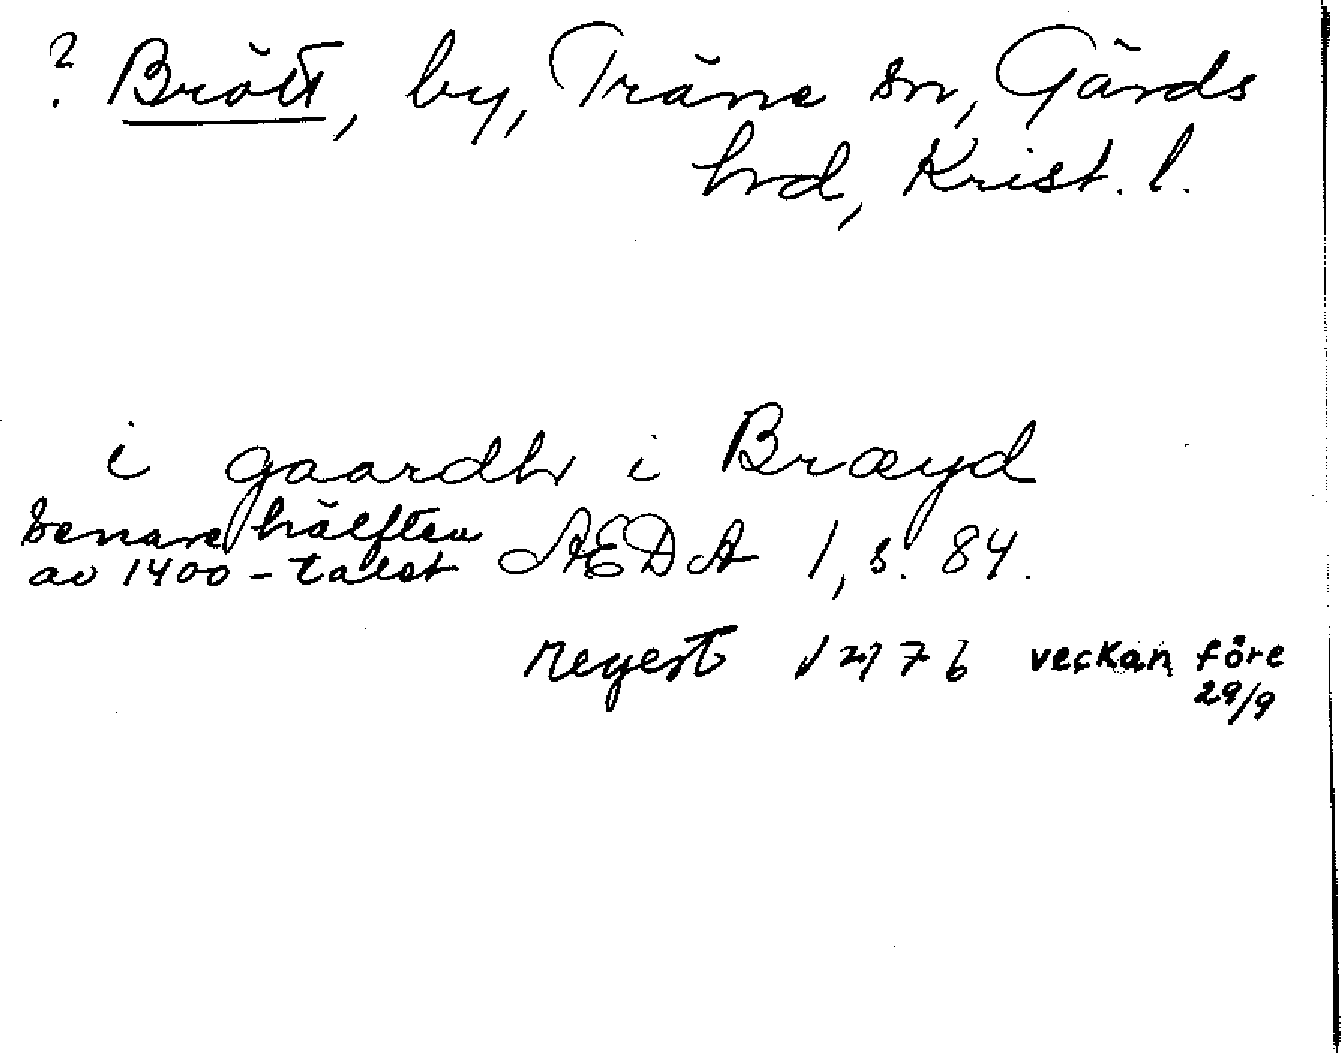 ? Brött, by, Träne sn, Gärds
hrd, Krist. l.
i gaardh i Brøyd
senare hälften
av 1400-talet ÆDA 1, s. 84.
regest 1476 veckan före
29/9